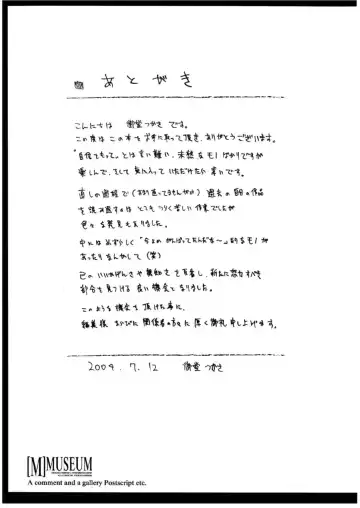 あとがき
こんにちは 御堂つかさ です。
この度は この本を 手に取って頂き、ありがとうございます。
"自信をもって"とは言い難い、未熟なモノばかりですが
楽しんで、そして気に入って いただけたら 幸いです。
直しの過程で(あまり直ってませんが) 過去の自分の作品
を読み返すのは とても つらく苦しい作業でしたが
色々な発見もありました。
中には めずらしく「今より がんばってたんだな〜」的なモノが
あったり なんかして(笑)
己の いいかげんさ や 無知さ を 反省し、新たに
部分を 見つける 良い機会となりました。
このような機会を 頂けた事に、
編集様 ならびに 関係者の方々に 厚く御礼 申し上げます。
2009.7.12 御堂つかさ
[M]MUSEUM
A comment and a gallery Postscript etc.